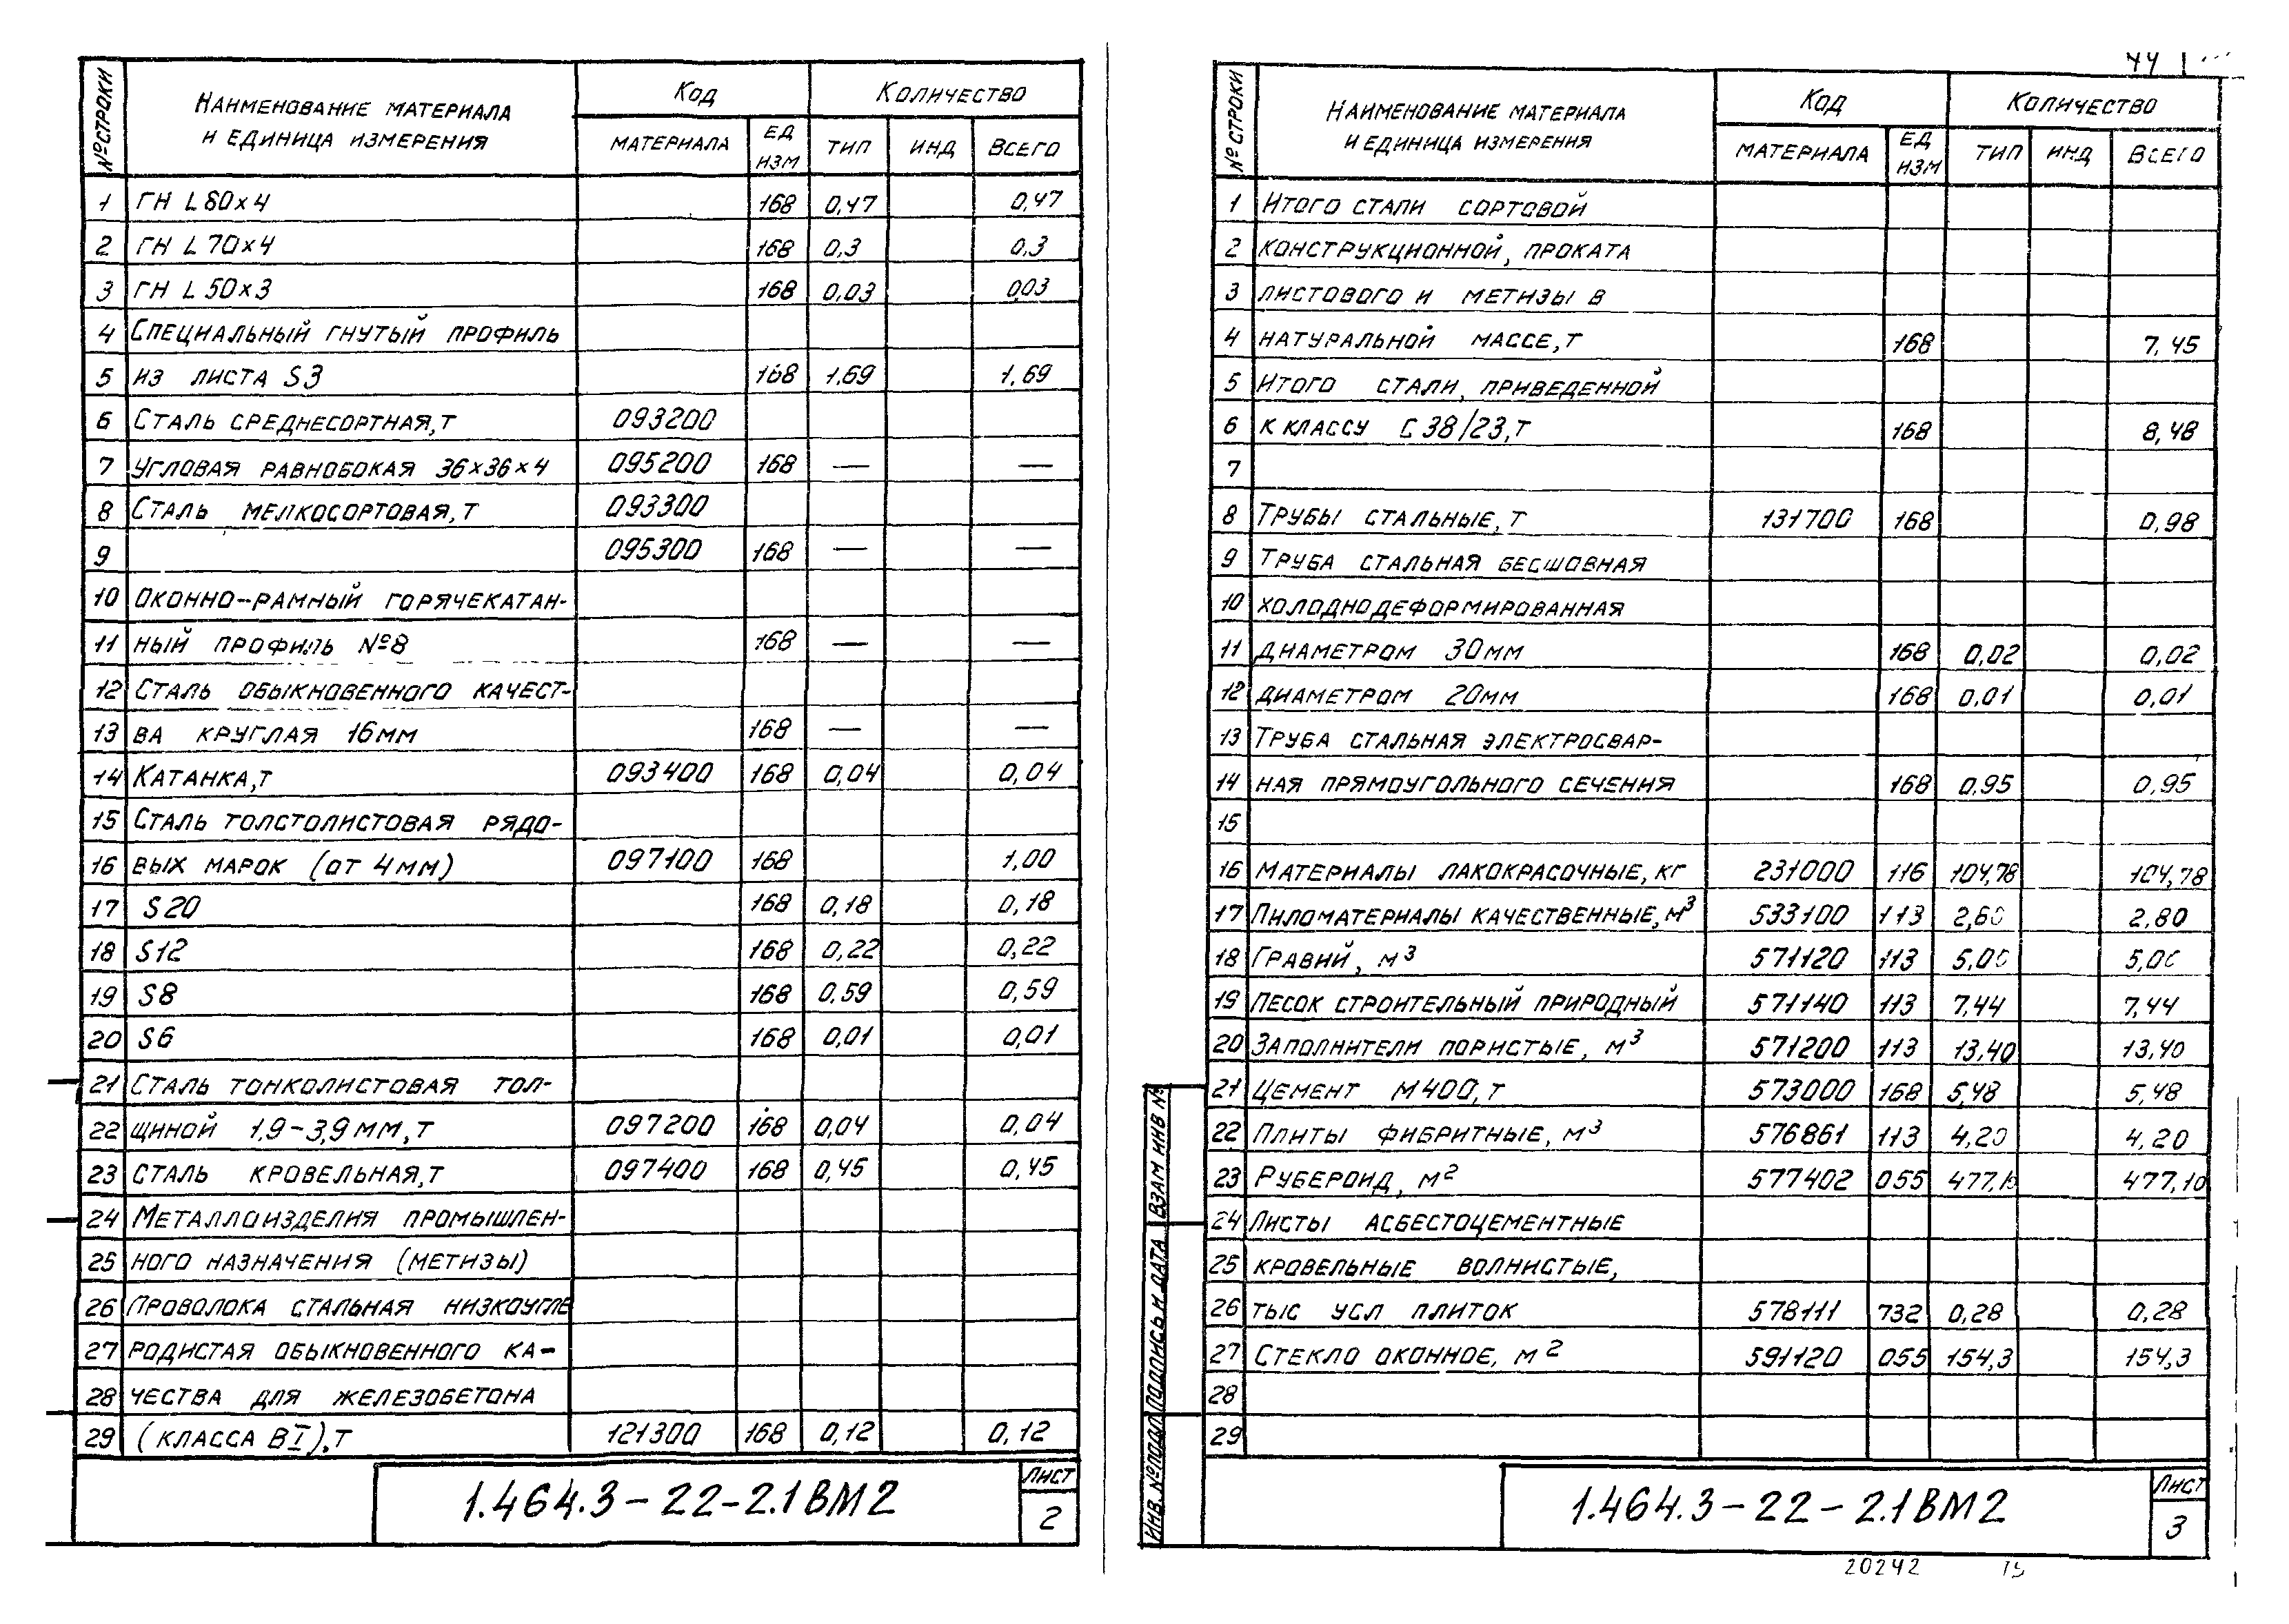 № СТРОКИ | НАИМЕНОВАНИЕ МАТЕРИАЛА И ЕДИНИЦА ИЗМЕРЕНИЯ | КОД | КОЛИЧЕСТВО
МАТЕРИАЛА | ЕД ИЗМ | ТИП | ИНД | ВСЕГО
1 ГН L 80×4 168 0,47 0,47
2 ГН L 70×4 168 0,3 0,3
3 ГН L 50×3 168 0,03 0,03
4 СПЕЦИАЛЬНЫЙ ГНУТЫЙ ПРОФИЛЬ
5 ИЗ ЛИСТА S3 168 1,69 1,69
6 СТАЛЬ СРЕДНЕСОРТНАЯ, Т 093200
7 УГЛОВАЯ РАВНОБОКАЯ 36×36×4 095200 168 — —
8 СТАЛЬ МЕЛКОСОРТОВАЯ, Т 093300
9 095300 168 — —
10 ОКОННО-РАМНЫЙ ГОРЯЧЕКАТАН-
11 НЫЙ ПРОФИЛЬ №8 168 — —
12 СТАЛЬ ОБЫКНОВЕННОГО КАЧЕСТ-
13 ВА КРУГЛАЯ 16ММ 168 — —
14 КАТАНКА, Т 093400 168 0,04 0,04
15 СТАЛЬ ТОЛСТОЛИСТОВАЯ РЯДО-
16 ВЫХ МАРОК (ОТ 4ММ) 097100 168 1,00
17 S20 168 0,18 0,18
18 S12 168 0,22 0,22
19 S8 168 0,59 0,59
20 S6 168 0,01 0,01
21 СТАЛЬ ТОНКОЛИСТОВАЯ ТОЛ-
22 ЩИНОЙ 1,9-3,9ММ, Т 097200 168 0,04 0,04
23 СТАЛЬ КРОВЕЛЬНАЯ, Т 097400 168 0,45 0,45
24 МЕТАЛЛОИЗДЕЛИЯ ПРОМЫШЛЕН-
25 НОГО НАЗНАЧЕНИЯ (МЕТИЗЫ)
26 ПРОВОЛОКА СТАЛЬНАЯ НИЗКОУГЛЕ
27 РОДИСТАЯ ОБЫКНОВЕННОГО КА-
28 ЧЕСТВА ДЛЯ ЖЕЛЕЗОБЕТОНА
29 (КЛАССА ВI), Т 121300 168 0,12 0,12
1.464.3-22-2.1ВМ2
ЛИСТ
2
44
№ СТРОКИ | НАИМЕНОВАНИЕ МАТЕРИАЛА И ЕДИНИЦА ИЗМЕРЕНИЯ | КОД | КОЛИЧЕСТВО
МАТЕРИАЛА | ЕД ИЗМ | ТИП | ИНД | ВСЕГО
1 ИТОГО СТАЛИ СОРТОВОЙ
2 КОНСТРУКЦИОННОЙ, ПРОКАТА
3 ЛИСТОВОГО И МЕТИЗЫ В
4 НАТУРАЛЬНОЙ МАССЕ, Т 168 7,45
5 ИТОГО СТАЛИ, ПРИВЕДЕННОЙ
6 К КЛАССУ С 38/23, Т 168 8,48
7
8 ТРУБЫ СТАЛЬНЫЕ, Т 131700 168 0,98
9 ТРУБА СТАЛЬНАЯ БЕСШОВНАЯ
10 ХОЛОДНОДЕФОРМИРОВАННАЯ
11 ДИАМЕТРОМ 30ММ 168 0,02 0,02
12 ДИАМЕТРОМ 20ММ 168 0,01 0,01
13 ТРУБА СТАЛЬНАЯ ЭЛЕКТРОСВАР-
14 НАЯ ПРЯМОУГОЛЬНОГО СЕЧЕНИЯ 168 0,95 0,95
15
16 МАТЕРИАЛЫ ЛАКОКРАСОЧНЫЕ, КГ 231000 116 104,78 104,78
17 ПИЛОМАТЕРИАЛЫ КАЧЕСТВЕННЫЕ, М³ 533100 113 2,80
18 ГРАВИЙ, М³ 571120 113 5,00 5,00
19 ПЕСОК СТРОИТЕЛЬНЫЙ ПРИРОДНЫЙ 571140 113 7,44 7,44
20 ЗАПОЛНИТЕЛИ ПОРИСТЫЕ, М³ 571200 113 13,40 13,40
21 ЦЕМЕНТ М400, Т 573000 168 5,48 5,48
22 ПЛИТЫ ФИБРИТНЫЕ, М³ 576861 113 4,20 4,20
23 РУБЕРОИД, М² 577402 055 477,10 477,10
24 ЛИСТЫ АСБЕСТОЦЕМЕНТНЫЕ
25 КРОВЕЛЬНЫЕ ВОЛНИСТЫЕ,
26 ТЫС УСЛ ПЛИТОК 578111 732 0,28 0,28
27 СТЕКЛО ОКОННОЕ, М² 591120 055 154,3 154,3
28
29
ИНВ. №ПОДЛ ПОДПИСЬ И ДАТА ВЗАМ ИНВ №
1.464.3-22-2.1ВМ2
ЛИСТ
3
20242